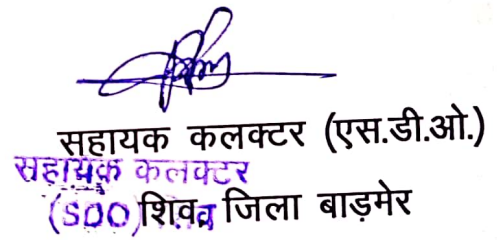 सहायक कलक्टर (एस.डी.ओ.)
सहायक कलक्टर
(SDO) शिव, जिला बाड़मेर